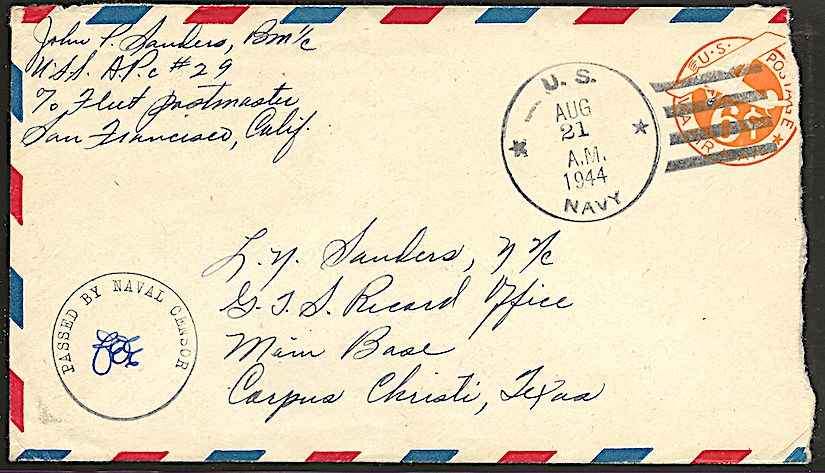 John P. Sanders, BM1/c
U.S.S. APc #29
% Fleet Postmaster
San Francisco, Calif.
U.S.
AUG
21
A.M.
1944
NAVY
U.S. POSTAGE
6¢
VIA AIR MAIL
L. Y. Sanders, Y 1/c
G. T. S. Record Office
Main Base
Corpus Christi, Texas
PASSED BY NAVAL CENSOR